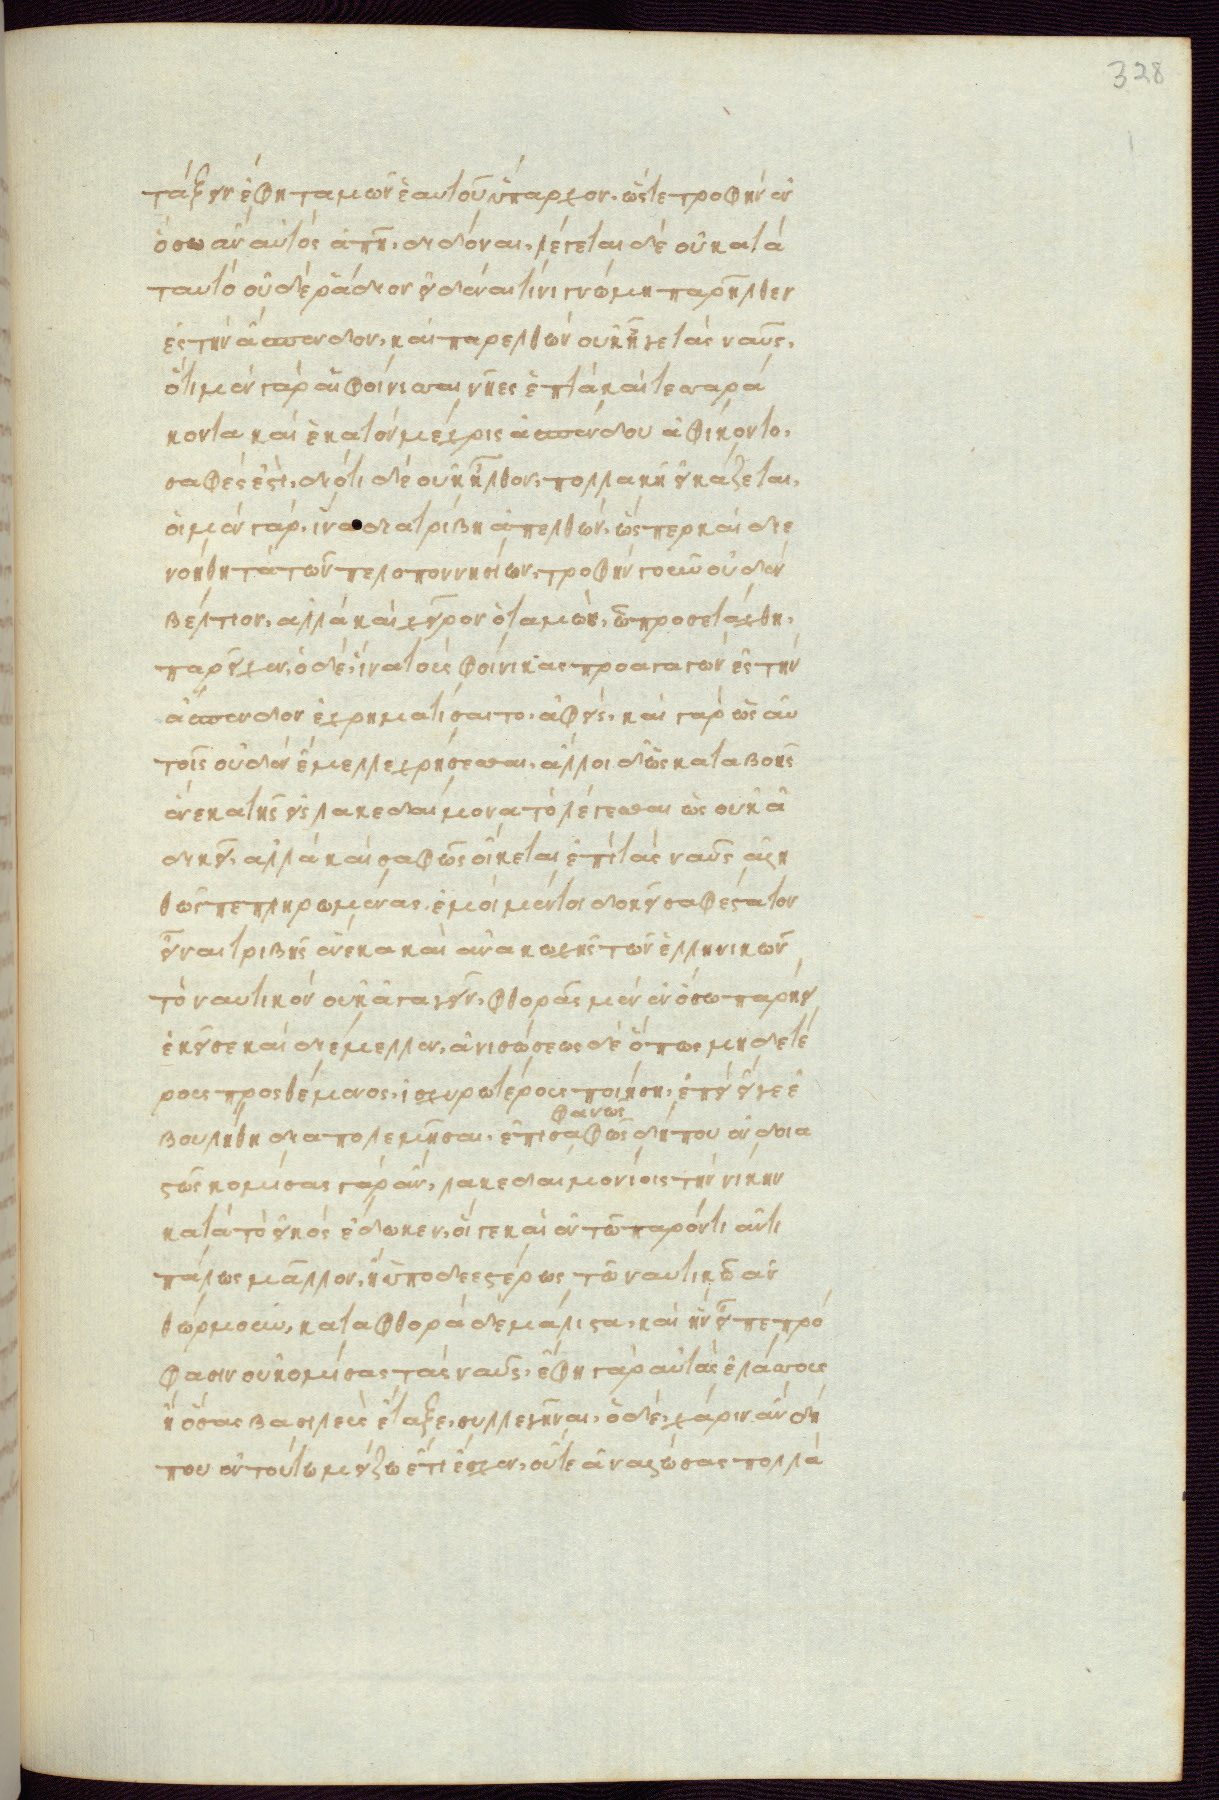 328
τάξειν ἔφη ταμὼν ἑαυτοῦ ὕπαρχον, ὥστε τροφὴν ἐν
ὅσω ἂν αὐτὸς ἀπῆ, διδόναι, λέγεται δὲ οὐ κατὰ
ταυτὸ οὐδὲ ῥάδιον εἰδέναι τίνι γνώμη παρῆλθεν
ἐς τὴν ἄσπενδον, καὶ παρελθὼν οὐκ ἦγε τὰς ναῦς,
ὅτι μὲν γὰρ αἱ φοίνισσαι νῆες ἑπτὰ καὶ τεσσαρά
κοντα καὶ ἑκατὸν μέχρις ἀσπένδου ἀφίκοντο,
σαφές ἐστι, διότι δὲ οὐκ ἦλθον, πολλαχῆ εἰκάζεται,
οἱ μὲν γὰρ, ἵνα διατρίβη ἀπελθὼν, ὥσπερ καὶ διε
νοήθη τὰ τῶν πελοποννησίων, τροφὴν γοῦν οὐδὲν
βέλτιον, ἀλλὰ καὶ χεῖρον ὁ ταμὼς, ὧ προσετάχθη,
παρεῖχεν, ὁ δὲ, ἵνα τοὺς φοίνικας προαγαγὼν ἐς τὴν
ἄσπενδον ἐχρηματίσαιτο, ἀφεὶς, καὶ γὰρ ὣς αὐ
τοῖς οὐδὲν ἔμελλε χρήσεσθαι, ἄλλοι δ' ὡς καταβοῆς
ἕνεκα τῆς εἰς λακεδαίμονα τὸ λέγεσθαι ὡς οὐκ ἀ
δικεῖ, ἀλλὰ καὶ σαφῶς οἴχεται ἐπὶ τὰς ναῦς ἀλη
θῶς πεπληρωμένας, ἐμοὶ μέντοι δοκεῖ σαφέστατον
εἶναι τριβῆς ἕνεκα καὶ ἀνακωχῆς τῶν ἑλληνικῶν
τὸ ναυτικὸν οὐκ ἀγαγεῖν, φθορᾶς μὲν ἐν ὅσω παρήει
ἐκεῖσε καὶ διέμελλεν, ἀνισώσεως δὲ ὅπως μηδετέ
ρους προσθέμενος, ἰσχυροτέρους ποιήση, ἐπεὶ εἴγε ἐ
φανως
βουλήθη διαπολεμῆσαι, ἐπισαφῶς δήπου ἐνδοια
στῶς κομίσας γὰρ ἂν, λακεδαιμονίοις τὴν νίκην
κατὰ τὸ εἰκὸς ἔδωκεν, οἵ γε καὶ ἐν τῶ παρόντι ἀντι
πάλως μᾶλλον, ἢ ὑποδεεστέρως τῶ ναυτικῶ ἀν
θώρμουν, καταφωρᾶ δὲ μάλιστα, καὶ ἣν εἶπε πρό
φασιν οὐ κομίσας τὰς ναῦς, ἔφη γὰρ αὐτὰς ἐλάσσους
ἢ ὅσας βασιλεὺς ἔταξε, συλλεγῆναι, ὁ δὲ, χάριν ἂν δή
που ἐν τούτω μείζω ἔτι ἔσχεν, οὔτε ἀναλώσας πολλὰ